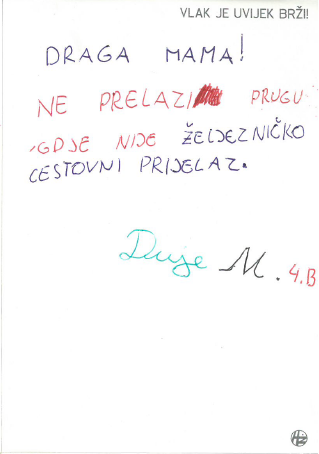 VLAK JE UVIJEK BRŽI!
DRAGA MAMA!
NE PRELAZI PRUGU
GDJE NIJE ŽELJEZNIČKO
CESTOVNI PRIJELAZ.
Duje M. 4.B
HŽ